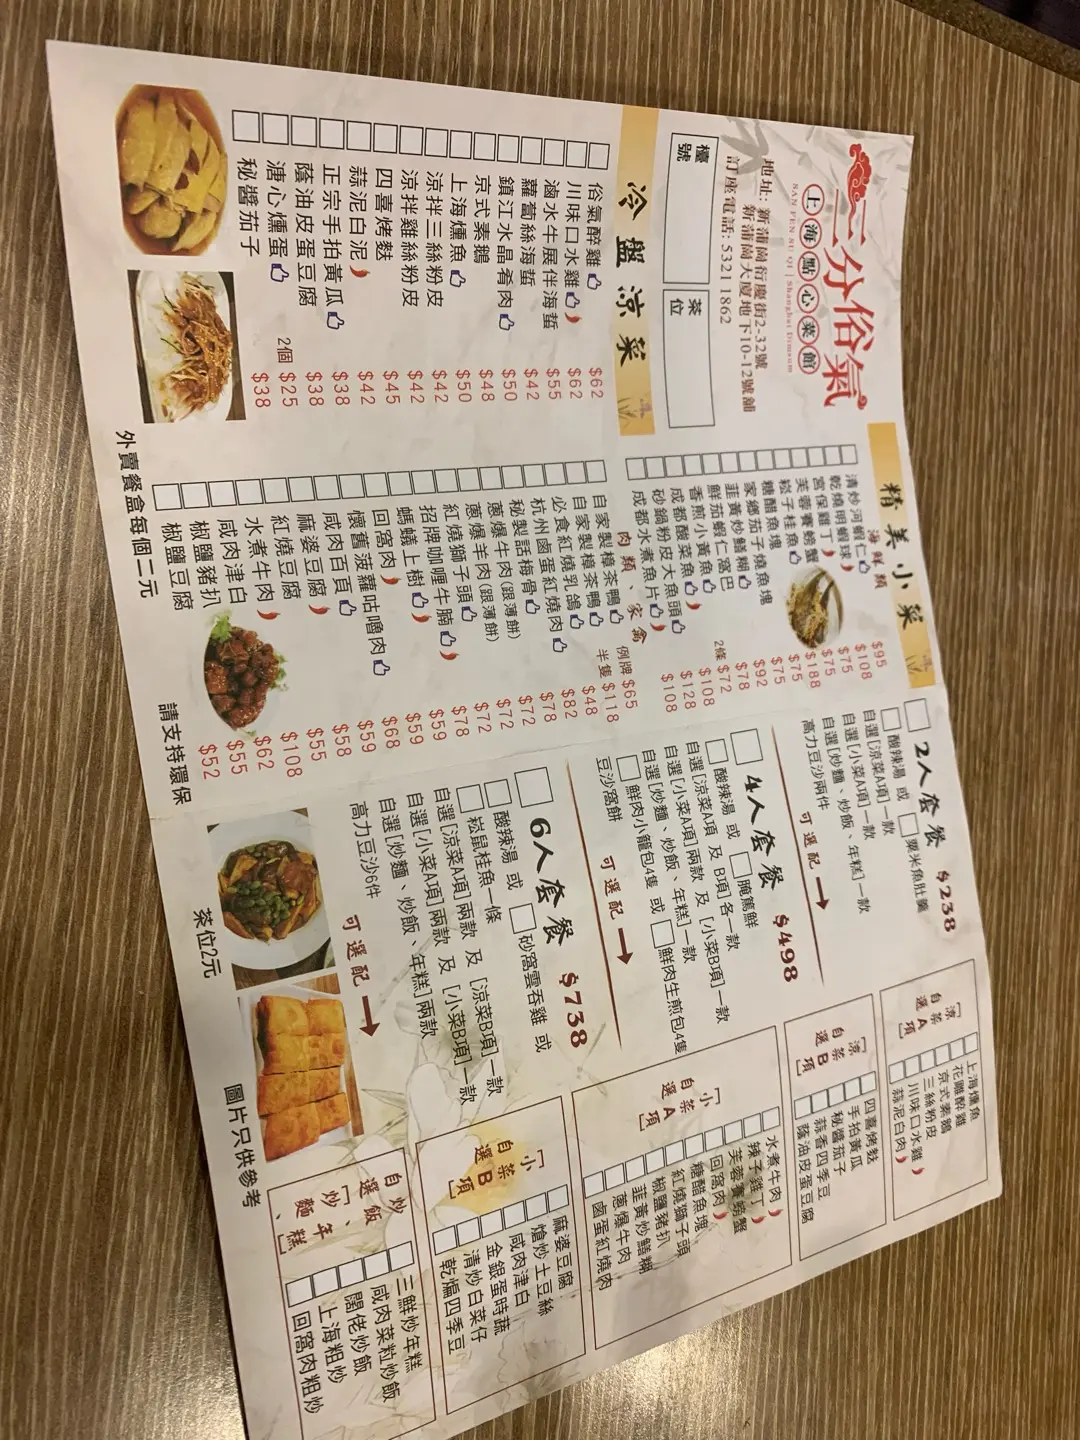 三分俗氣
上海點心菜館
SAN FEN SU QI | Shanghai Dimsum
地址: 新蒲崗衍慶街2-32號
新蒲崗大廈地下10-12號舖
訂座電話: 53211862
檯號
茶位
冷盤涼菜
俗氣醉雞 $62
川味口水雞 $62
滷水牛展伴海蜇 $55
蘿蔔絲海蜇 $42
鎮江水晶肴肉 $50
京式素鵝 $48
上海燻魚 $50
涼拌三絲粉皮 $42
涼拌雞絲粉皮 $42
四喜烤麩 $45
蒜泥白泥 $42
正宗手拍黃瓜 $38
蔭油皮蛋豆腐 $38
溏心燻蛋 2個 $25
秘醬茄子 $38
精美小菜
海鮮類
清炒河蝦仁 $95
乾燒明蝦球 $108
宮保雞丁 $75
芙蓉賽螃蟹 $75
崧子桂魚 $188
糖醋魚塊 $75
家鄉茄子燒魚塊 $75
韮黃炒鱔糊 $92
鮮茄蝦仁窩巴 $78
香煎小黃魚 2條 $72
成都酸菜魚 $108
砂鍋粉皮大魚頭 $128
成都水煮魚片 $108
肉類、家禽
自家製樟茶鴨 例牌 $65
自家製樟茶鴨 半隻 $118
必食紅燒乳鴿 $48
杭州鹵蛋紅燒肉 $82
秘製話梅骨 $78
蔥爆牛肉(跟薄餅) $72
蔥爆羊肉(跟薄餅) $72
紅燒獅子頭 $72
招牌咖喱牛腩 $78
螞蟻上樹 $59
回窩肉 $59
懷舊菠蘿咕嚕肉 $68
咸肉百頁 $59
麻婆豆腐 $58
紅燒豆腐 $55
水煮牛肉 $108
咸肉津白 $62
椒鹽豬扒 $55
椒鹽豆腐 $52
2人套餐 $238
酸辣湯 或 粟米魚肚羹
自選[涼菜A項]一款
自選[小菜A項]一款
自選[炒麵、炒飯、年糕]一款
高力豆沙兩件
可選配
4人套餐 $498
酸辣湯 或 腌篤鮮
自選[涼菜A項 及 B項]各一款
自選[小菜A項]兩款 及 [小菜B項]一款
自選[炒麵、炒飯、年糕]一款
鮮肉小籠包4隻 或 鮮肉生煎包4隻
豆沙窩餅
可選配
6人套餐 $738
酸辣湯 或 砂窩雲吞雞 或
崧鼠桂魚一條
自選[涼菜A項]兩款 及 [涼菜B項]一款
自選[小菜A項]兩款 及 [小菜B項]一款
自選[炒麵、炒飯、年糕]兩款
高力豆沙6件
可選配
自選[涼菜A項]
上海燻魚
花雕醉雞
京式素鵝
三絲粉皮
川味口水雞
蒜泥白肉
自選[涼菜B項]
四喜烤麩
手拍黃瓜
秘醬茄子
蒜香四季豆
蔭油皮蛋豆腐
自選[小菜A項]
水煮牛肉
辣子雞丁
芙蓉賽螃蟹
回窩肉
糖醋魚塊
紅燒獅子頭
椒鹽豬扒
韮黃炒鱔糊
蔥爆牛肉
鹵蛋紅燒肉
自選[小菜B項]
麻婆豆腐
熗炒土豆絲
咸肉津白
金銀蛋時蔬
清炒白菜仔
乾煸四季豆
自選[炒麵、炒飯、年糕]
三鮮炒年糕
咸肉菜粒炒飯
闊佬炒飯
上海粗炒
回窩肉粗炒
外賣餐盒每個二元
請支持環保
茶位2元
圖片只供參考